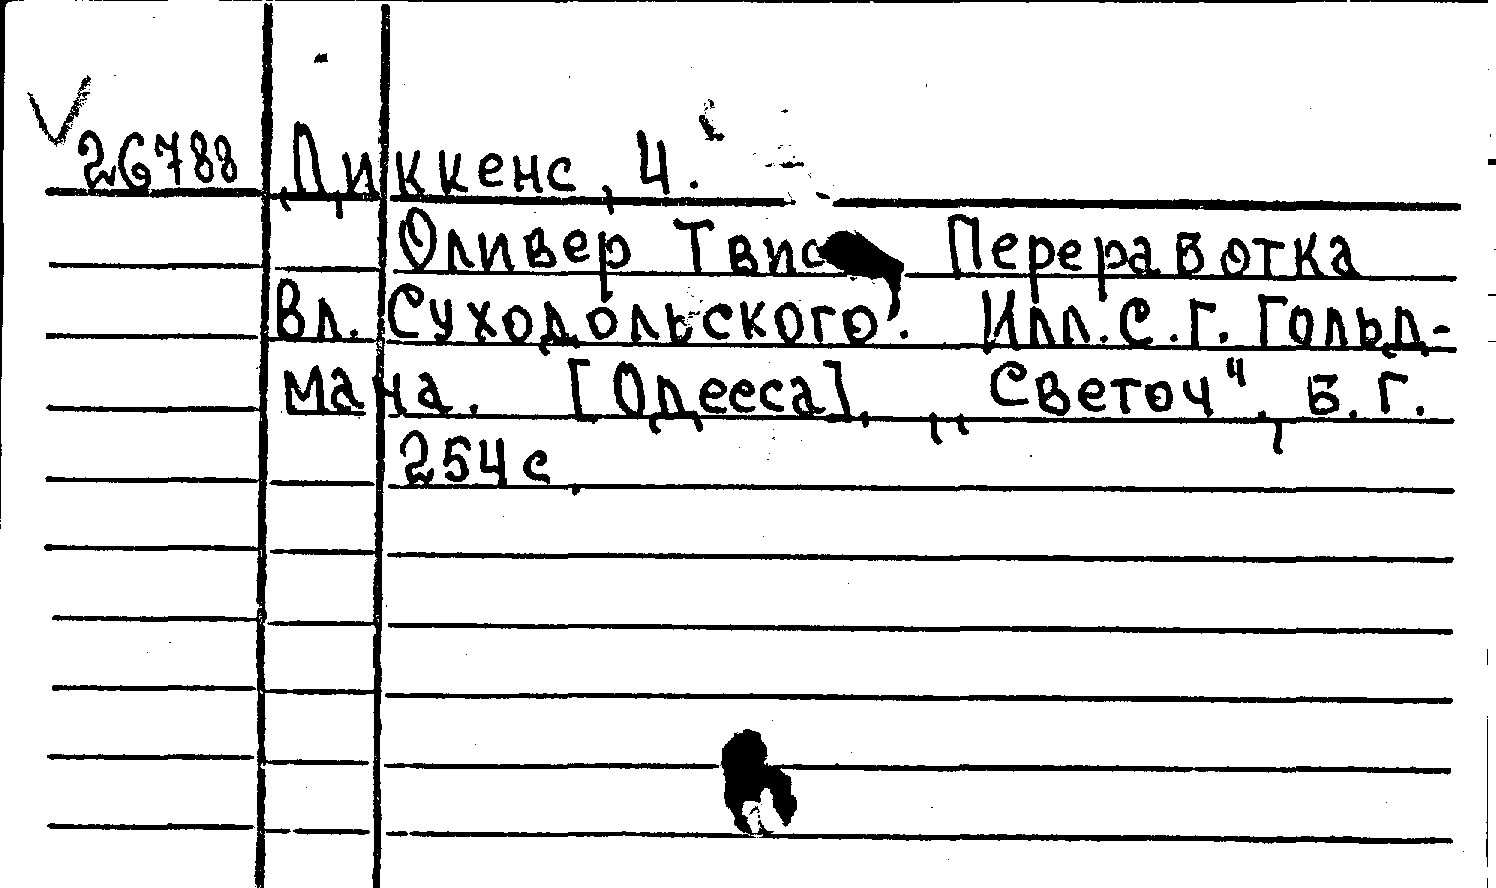 26788 Диккенс, Ч.
Оливер Переработка
Вл. Суходольского. Илл. С. Г. Гольд-
мана. [Одесса], „Светоч", б. г.
254 с.